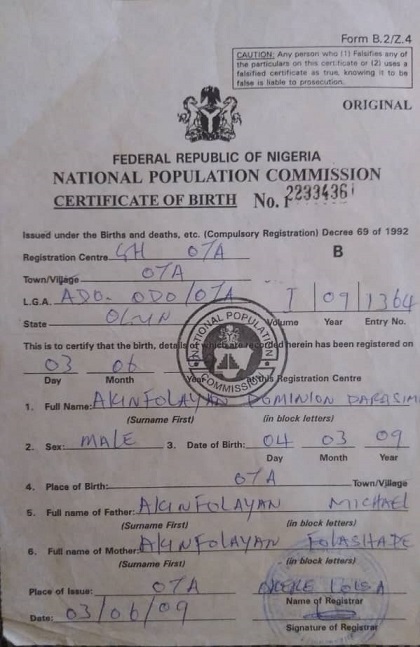 Form B.2/Z.4
CAUTION: Any person who (1) Falsifies any of
the particulars on this certificate or (2) uses a
falsified certificate as true, knowing it to be
false is liable to prosecution.
ORIGINAL
FEDERAL REPUBLIC OF NIGERIA
NATIONAL POPULATION COMMISSION
CERTIFICATE OF BIRTH No. 2233436
Issued under the Births and deaths, etc. (Compulsory Registration) Decree 69 of 1992
Registration Centre GH OTA B
Town/Village OTA
L.G.A. ADO-ODO/OTA I 09 1364
State OGUN Volume Year Entry No.
This is to certify that the birth, details of which are recorded herein has been registered on
03 06
Day Month Year at this Registration Centre
NATIONAL POPULATION COMMISSION
1. Full Name: AKINFOLAYAN DOMINION DARASIMI
(Surname First) (in block letters)
2. Sex: MALE 3. Date of Birth: 04 03 09
Day Month Year
4. Place of Birth: OTA Town/Village
5. Full name of Father: AKINFOLAYAN MICHAEL
(Surname First) (in block letters)
6. Full name of Mother: AKINFOLAYAN FOLASHADE
(Surname First) (in block letters)
Place of Issue: OTA
Name of Registrar
Date: 03/06/09
Signature of Registrar